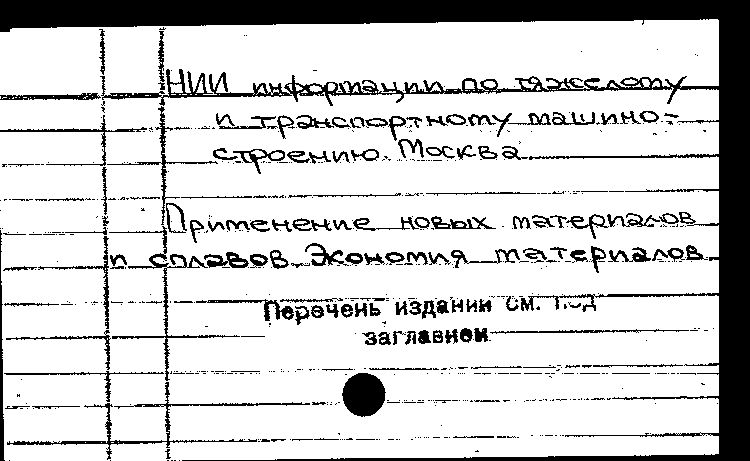 НИИ информации по тяжелому
и транспортному машино-
строению. Москва
Применение новых материалов
и сплавов. Экономия материалов
Перечень издании см. под
заглавием